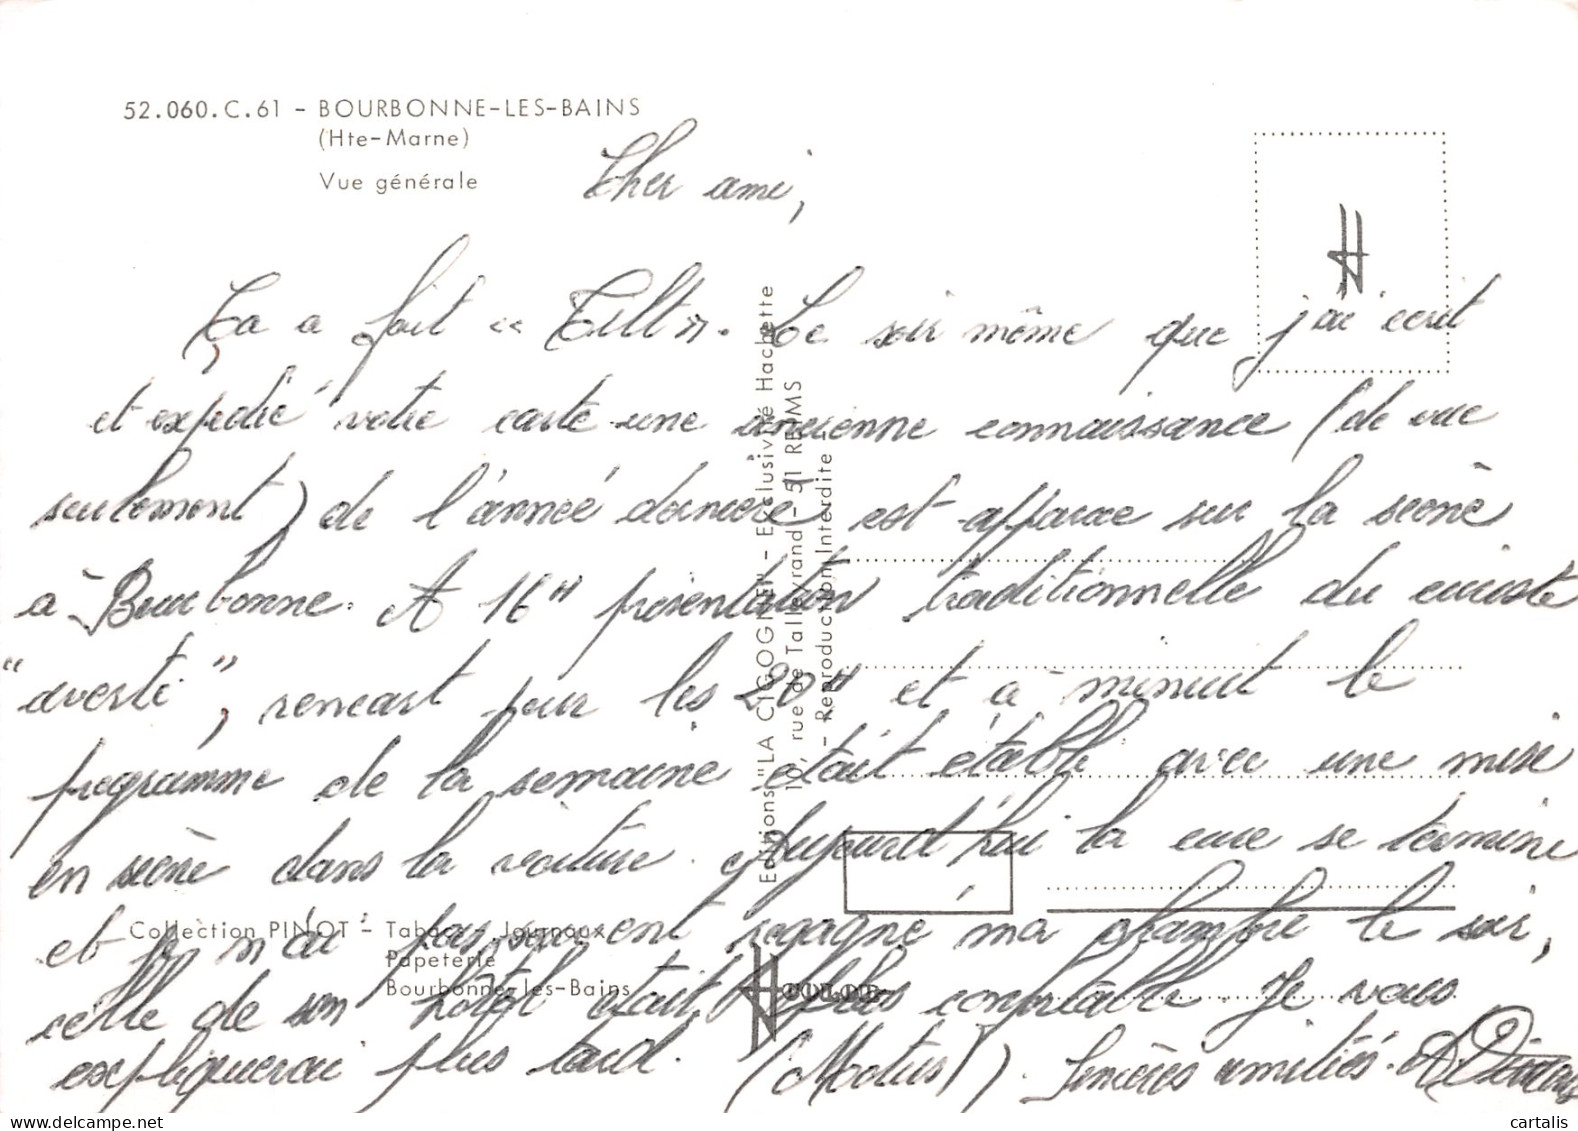 52.060.C.61 - BOURBONNE-LES-BAINS
(Hte-Marne)
Vue générale
Cher ami,
Ça a fait « Tilt ». Le soir même que j'ai écrit
et expédié votre carte une ancienne connaissance (de vue
seulement) de l'année dernière est apparue sur la scène
à Bourbonne. A 16H présentation traditionnelle du curiste
"averti", rencart pour les 20H et à minuit le
programme de la semaine était établi avec une mise
en scène dans la voiture. Aujourd'hui la cure se termine
et je n'ai pas souvent regagné ma chambre le soir,
celle de son hôtel était plus confortable. Je vous
expliquerai plus tard. (Motus!). Sincères amitiés.
Editions "LA CIGOGNE" - Exclusivité Hachette
110, rue de Talleyrand - 51 REIMS
- Reproduction Interdite -
Collection PINOT - Tabacs - Journaux
Papeterie
Bourbonne-les-Bains
cartalis
© cartalis